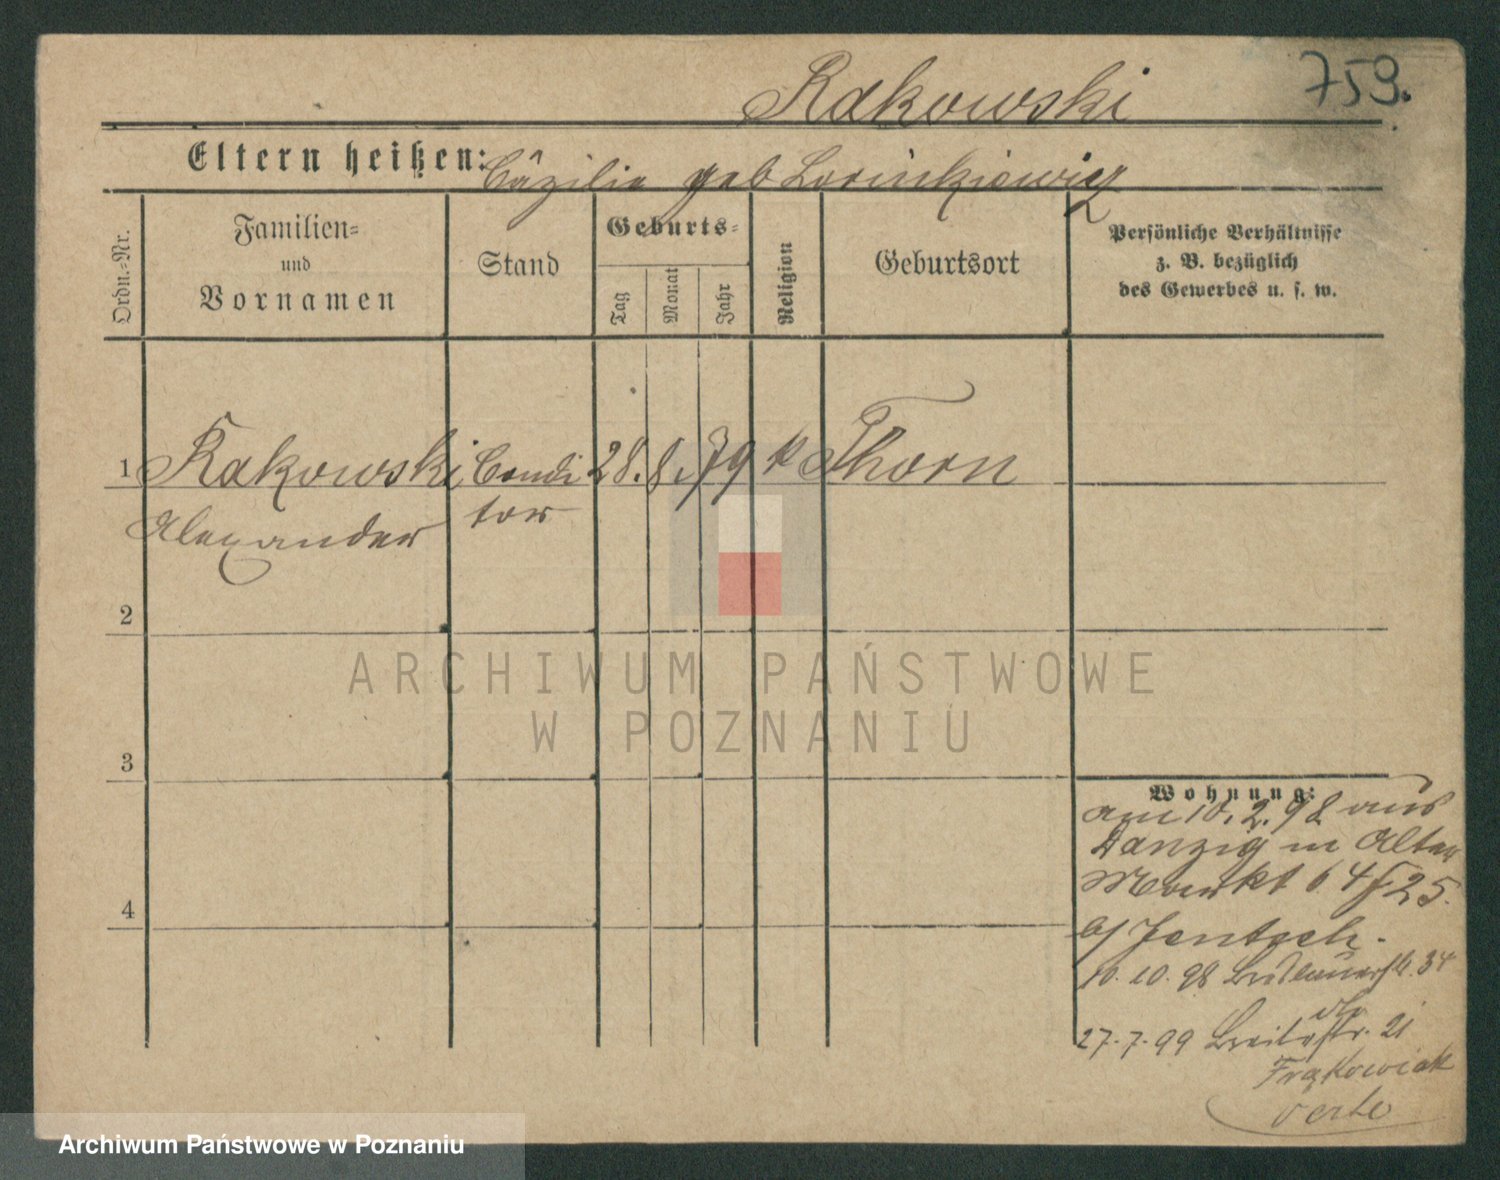 Rakowski
759.
Eltern heißen: Cäzilie geb
Ordn.=Nr.
Familien=
und
Vornamen
Stand
Geburts=
Tag
Monat
Jahr
Religion
Geburtsort
Persönliche Verhältnisse
z. B. bezüglich
des Gewerbes u. s. w.
1 Rakowski Condi 28. 8. 79 k Thorn
Alexander tor
2
3
4
Wohnung:
am 10. 2. 98 aus
Danzig in Alter
Markt 64/25.
b/ Jentsch.
10. 10. 98 34
27. 7. 99 21
Frąkowiak
verte
ARCHIWUM PAŃSTWOWE
W POZNANIU
Archiwum Państwowe w Poznaniu